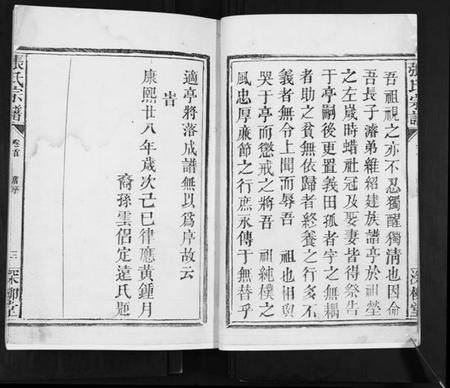 張氏宗譜
吾祖視之亦不忍獨醒獨清也因命
吾長子濬弟維紹建族譜亭於祖塋
之左歲時蜡社冠及娶妻皆得祭告
于亭嗣後更置義田孤者字之無耦
者助之貧無依歸者終養之行多不
義者無令上聞而辱吾 祖也相與
哭于亭而懲戒之將吾 祖純樸之
風忠厚廉節之行庶永傳于無替乎
適亭將落成譜無以為序故云
旹
康熙廿八年歲次己巳律應黃鍾月
裔孫雲侶定遠氏題
張氏宗譜
卷首
舊序
三
深柳堂